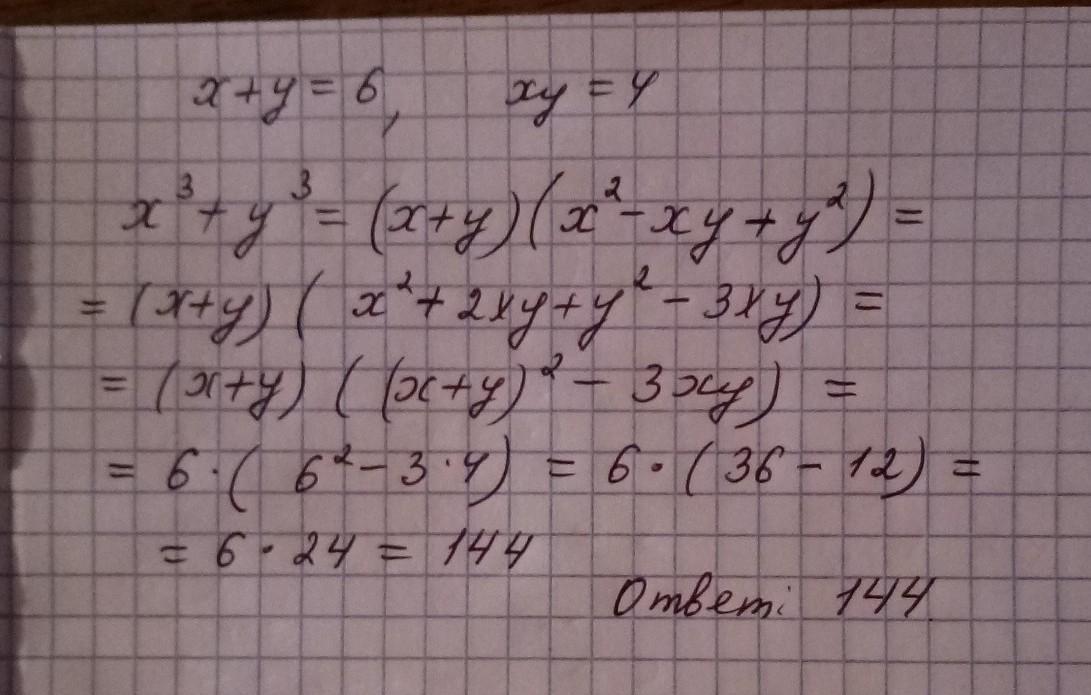 x+y=6, xy=4
x³+y³=(x+y)(x²-xy+y²)=
=(x+y)(x²+2xy+y²-3xy)=
=(x+y)((x+y)²-3xy)=
=6·(6²-3·4)=6·(36-12)=
=6·24=144
Ответ: 144